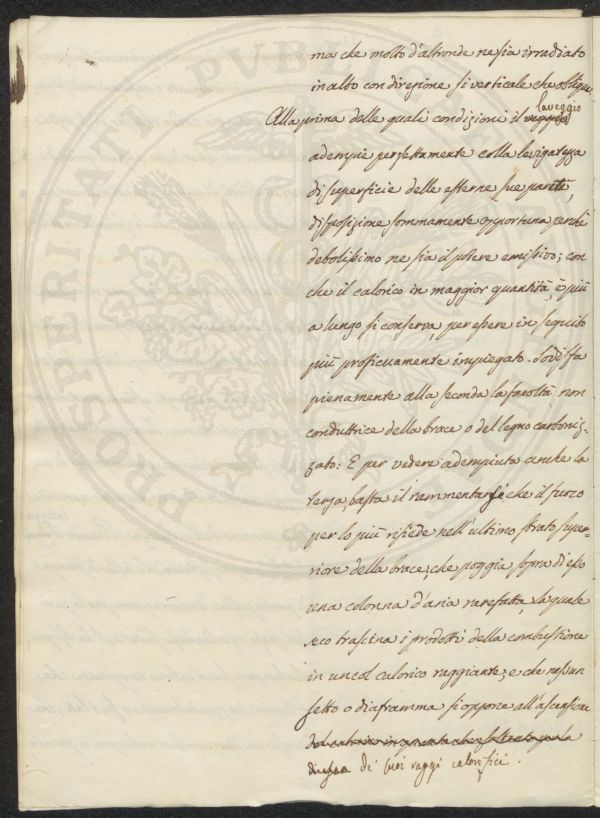 ma che molto d'altronde ne sia irradiato
in alto con direzione sì verticale che obliqua.
laveggio
Alla prima delle quali condizioni il veggio
adempie perfettamente colla levigatezza
di superficie delle esterne sue pareti,
disposizione sommamente opportuna perchè
debolissimo ne sia il potere emissivo; con
che il calorico in maggior quantità, e più
a lungo si conserva, per essere in seguito
più proficuamente impiegato. Sodisfa
pienamente alla seconda la facoltà non
conduttrice della brace o del legno carboniz-
zato: E per vedere adempiuta anche la
terza, basta il rammentarsi che il fuoco
per lo più risiede nell'ultimo strato supe-
riore della brace; che poggia sopra di esso
una colonna d'aria rarefatta, la quale
seco trascina i prodotti della combustione
in un col calorico raggiante; e che nessun
setto o diaframma si oppone all'ascensione
de' suoi raggi calorifici.
PROSPERITATI PUBLICAE